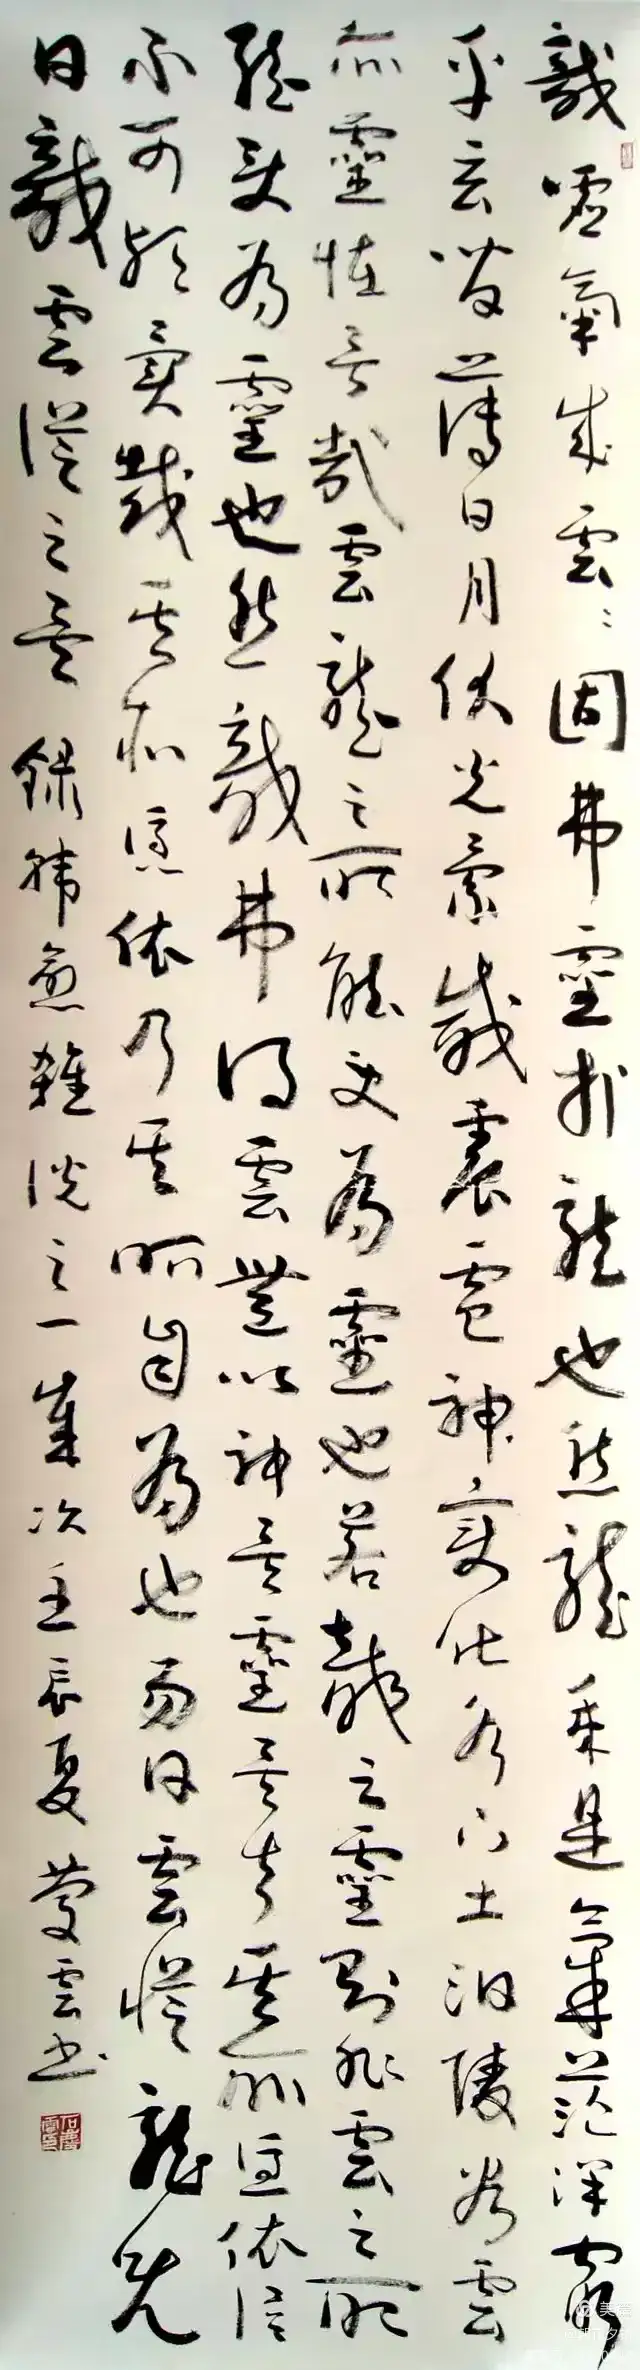 龍噓氣成雲〻固弗靈於龍也然龍乘是氣茫洋窮
乎玄間薄日月伏光景感震電神變化水下土汩陵谷雲
亦靈怪矣哉雲龍之所能使為靈也若龍之靈則非雲之所
能使為靈也然龍弗得雲無以神其靈矣失其所憑依信
不可歟異哉其所憑依乃其所自為也易曰雲從龍既
曰龍雲從之矣 錄韓愈雜說之一歲次壬辰夏雲書